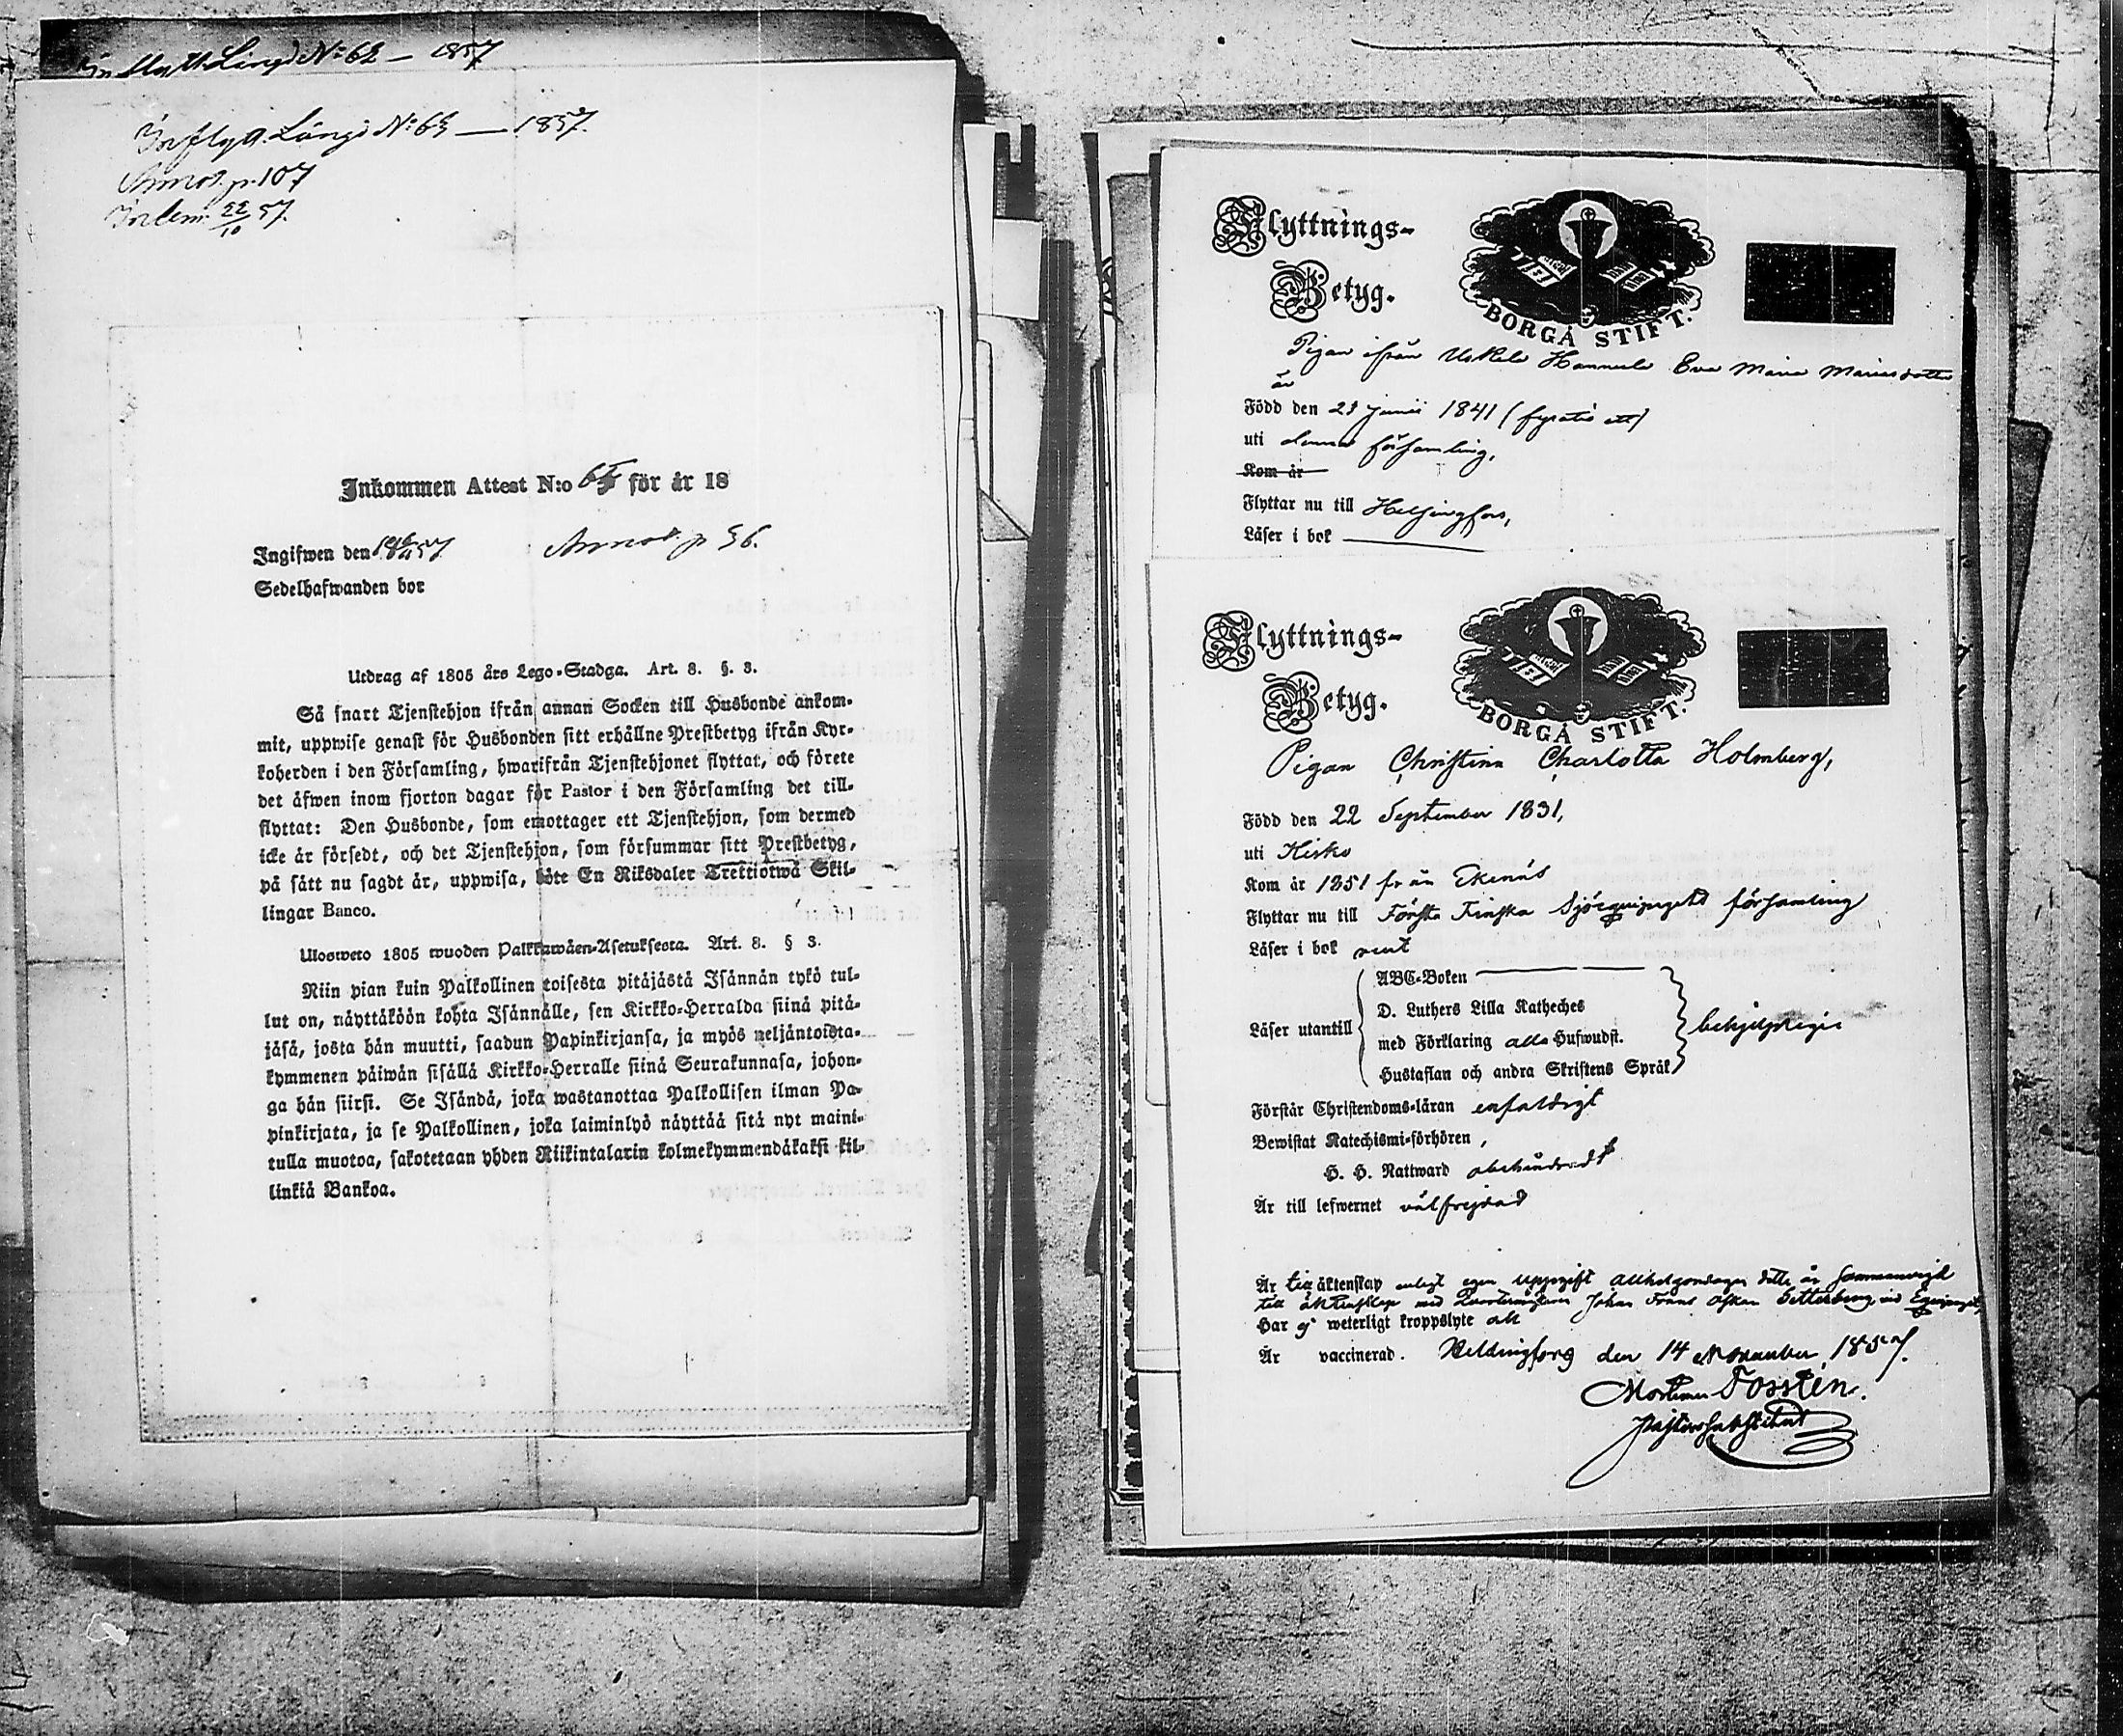 Inflytt. Längd N:o 62 — 1857
Inflytt. Längd N:o 63 — 1857.
Annot. p. 107
Inlem. 22/10 57.
Inkommen Attest N:o 65 för år 18
Ingifwen den 57 Annot. p 56.
Sedelhafwanden bor
Utdrag af 1805 års Lego-Stadga. Art. 8. §. 3.
Så snart Tjenstehjon ifrån annan Socken till Husbonde ankom-
mit, uppwise genast för Husbonden sitt erhållne Prestbetyg ifrån Kyr-
koherden i den Församling, hwarifrån Tjenstehjonet flyttat, och förete
det äfwen inom fjorton dagar för Pastor i den Församling det till-
flyttat: Den Husbonde, som emottager ett Tjenstehjon, som dermed
icke är försedt, och det Tjenstehjon, som försummar sitt Prestbetyg,
på sätt nu sagdt är, uppwisa, böte En Riksdaler Trettiotwå Skil-
lingar Banco.
Ulosweto 1805 wuoden Palkkawäen-Asetuksesta. Art. 8. § 3.
Niin pian kuin Palkollinen toisesta pitäjästä Isännän tykö tul-
lut on, näyttäköön kohta Isännälle, sen Kirkko-Herralda siinä pitä-
jäsä, josta hän muutti, saadun Papinkirjansa, ja myös neljäntoista-
kymmenen päiwän sisällä Kirkko-Herralle siinä Seurakunnasa, johon-
ga hän siirsi. Se Isändä, joka wastanottaa Palkollisen ilman Pa-
pinkirjata, ja se Palkollinen, joka laiminlyö näyttää sitä nyt maini-
tulla muotoa, sakotetaan yhden Riikintalarin kolmekymmendäkaksi kil-
linkiä Bankoa.
Flyttnings-
Betyg.
BORGÅ STIFT.
Pigan ifrån Uskela Hannula Eva Maria Mariasdotter
är
Född den 21 Junii 1841 (fyratio ett)
uti denna församling,
Kom år
Flyttar nu till Helsingfors,
Läser i bok
Flyttnings-
Betyg.
BORGÅ STIFT.
Pigan Christina Charlotta Holmberg,
Född den 22 September 1831,
uti Kisko
Kom år 1851 från Ekenäs
Flyttar nu till Första Finska Sjöequipagets församling
Läser i bok rent
Läser utantill
ABC-Boken
D. Luthers Lilla Katheches
med Förklaring alla Hufwudst.
Hustaflan och andra Skriftens Språk
behjelpligen
Förstår Christendoms-läran enfaldigt
Bewistat Katechismi-förhören,
H. H. Nattward obehindradt
Är till lefwernet välfrejdad
Är till äktenskap enligt egen uppgift Allhelgondagen detta år sammanvigd
till äktenskap med Johan Frans Oskar Setterberg vid Equipaget,
Har ej weterligt kroppslyte alt
Är vaccinerad. Helsingfors den 14 November 1857.
Mortimer Tossten.
Pastorssubstitut